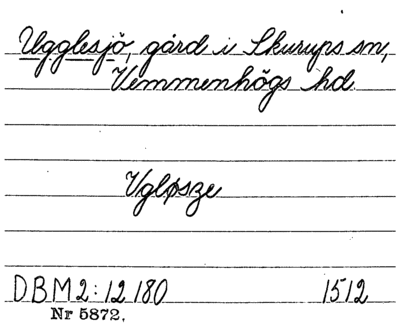 Ugglesjö, gård i Skurups sn,
Vemmenhögs hd.
Vgløsze
DBM 2:12 180 1512
Nr 5872.